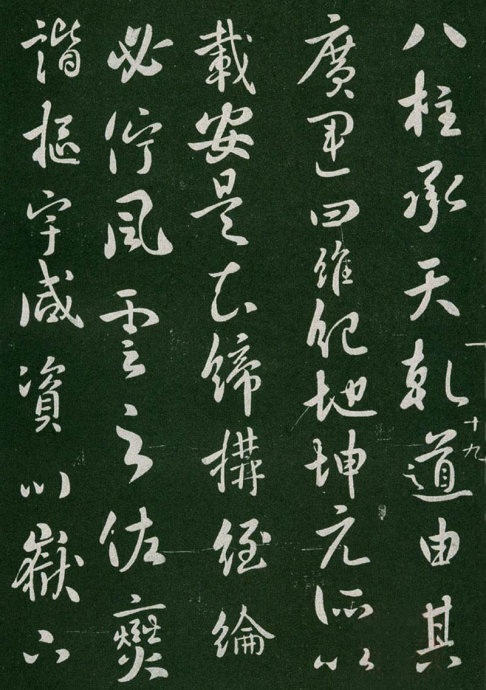 八柱承天乾道由其
十九
廣運四維紀地坤元所以
載安是知締構經綸
必佇風雲之佐燮
諧樞宇咸資川嶽之